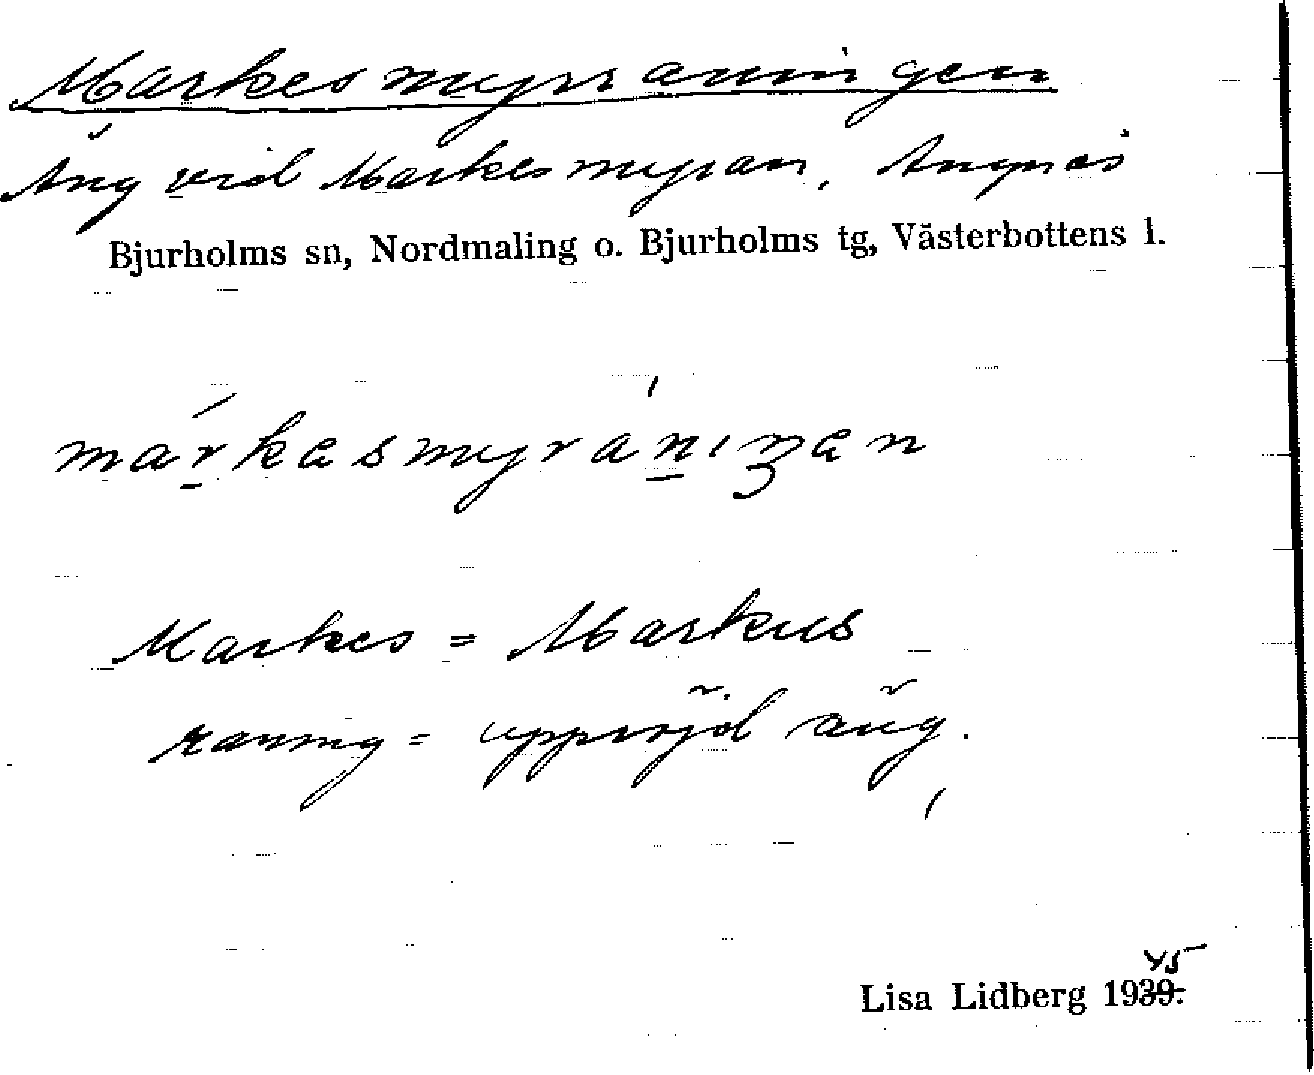 Markesmyrraningen
Äng vid Markesmyran, Angnäs
Bjurholms sn, Nordmaling o. Bjurholms tg, Västerbottens l.
márkasmyrániŋan
Markes = Markus
raning = uppröjd äng.
45
Lisa Lidberg 1939.